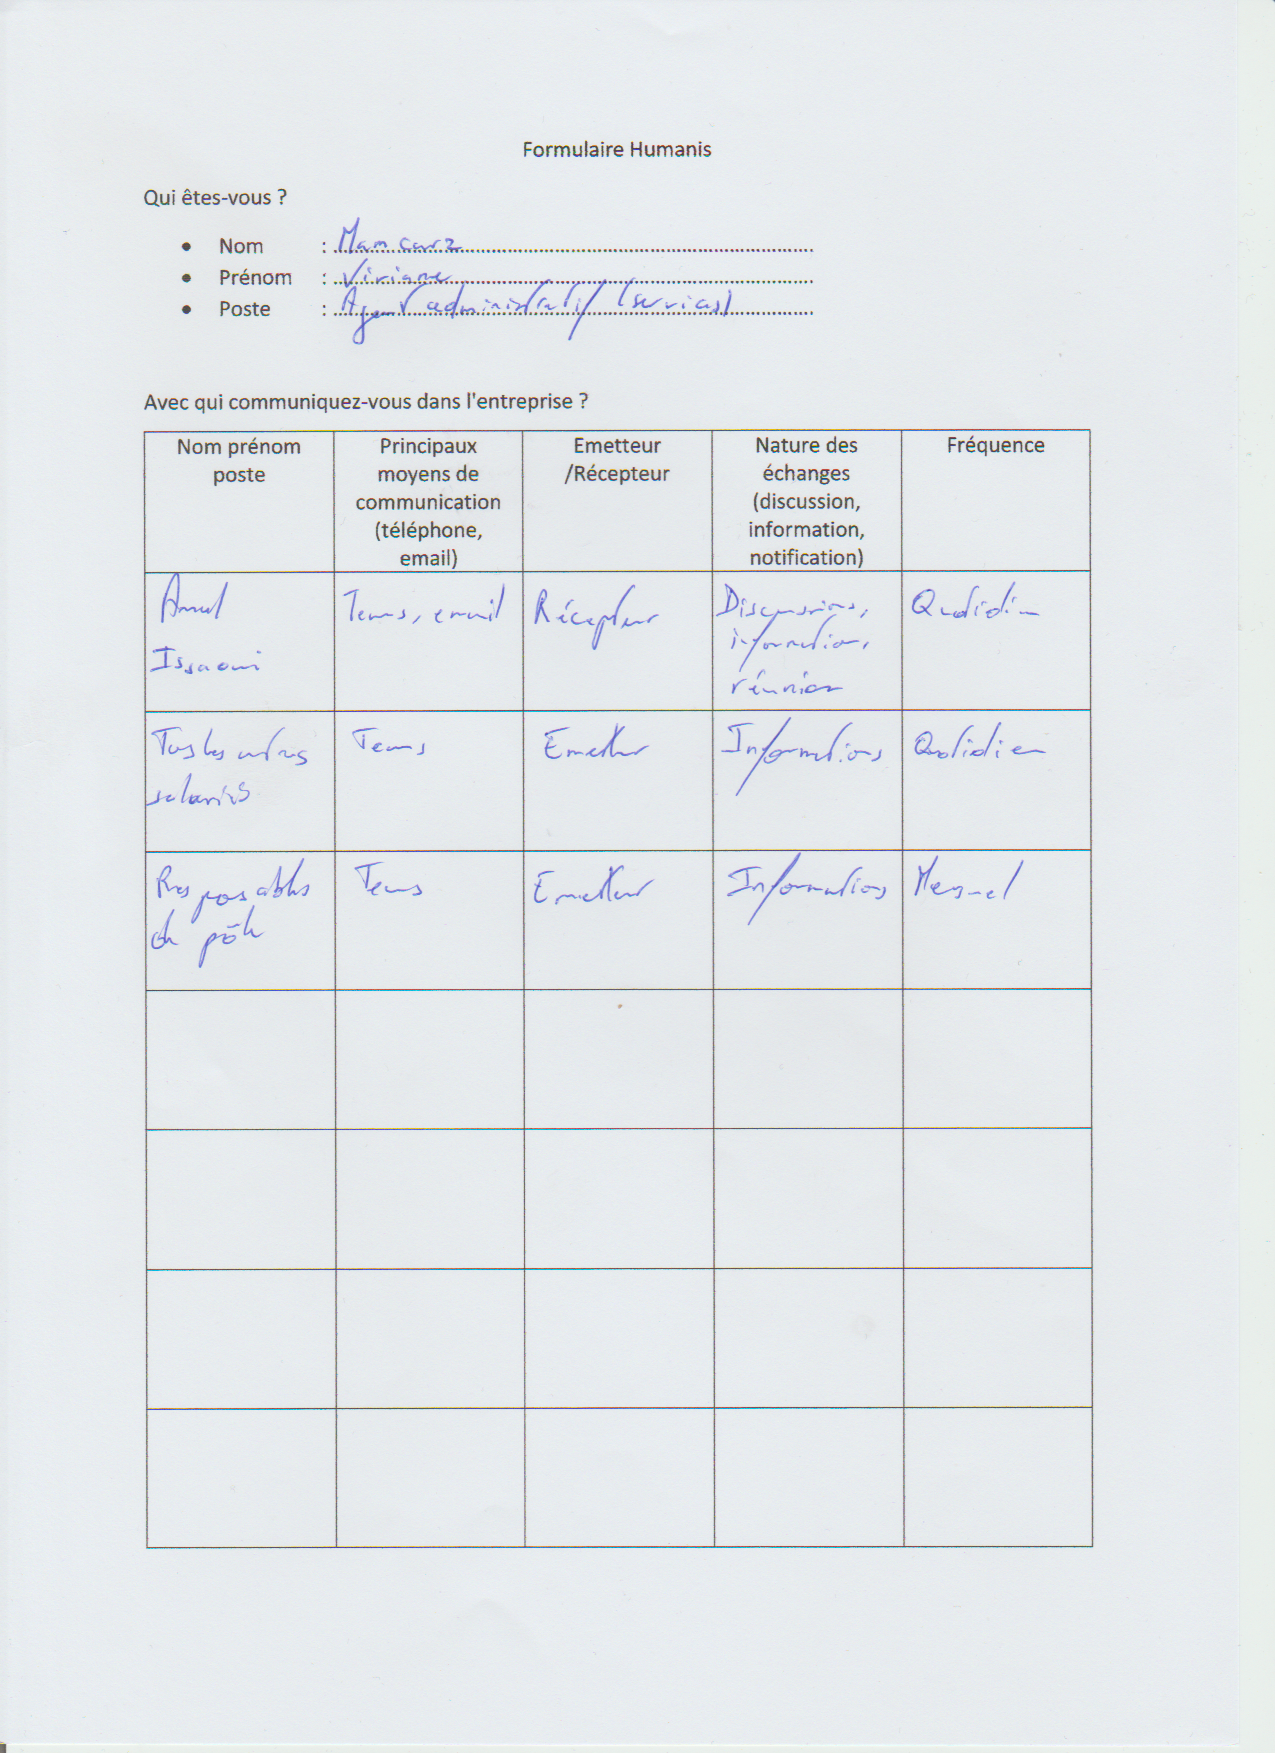 Formulaire Humanis
Qui êtes-vous ?
• Nom : Mamcarz
• Prénom : Viviane
• Poste : Agent administratif (services)
Avec qui communiquez-vous dans l'entreprise ?
Nom prénom
poste
Principaux
moyens de
communication
(téléphone,
email)
Emetteur
/Récepteur
Nature des
échanges
(discussion,
information,
notification)
Fréquence
Amel
Issaoui
Teams, email
Récepteur
Discussions,
information,
réunion
Quotidien
Tous les autres
salariés
Teams
Emetteur
Informations
Quotidien
Responsables
de pôle
Teams
Emetteur
Informations
Mensuel